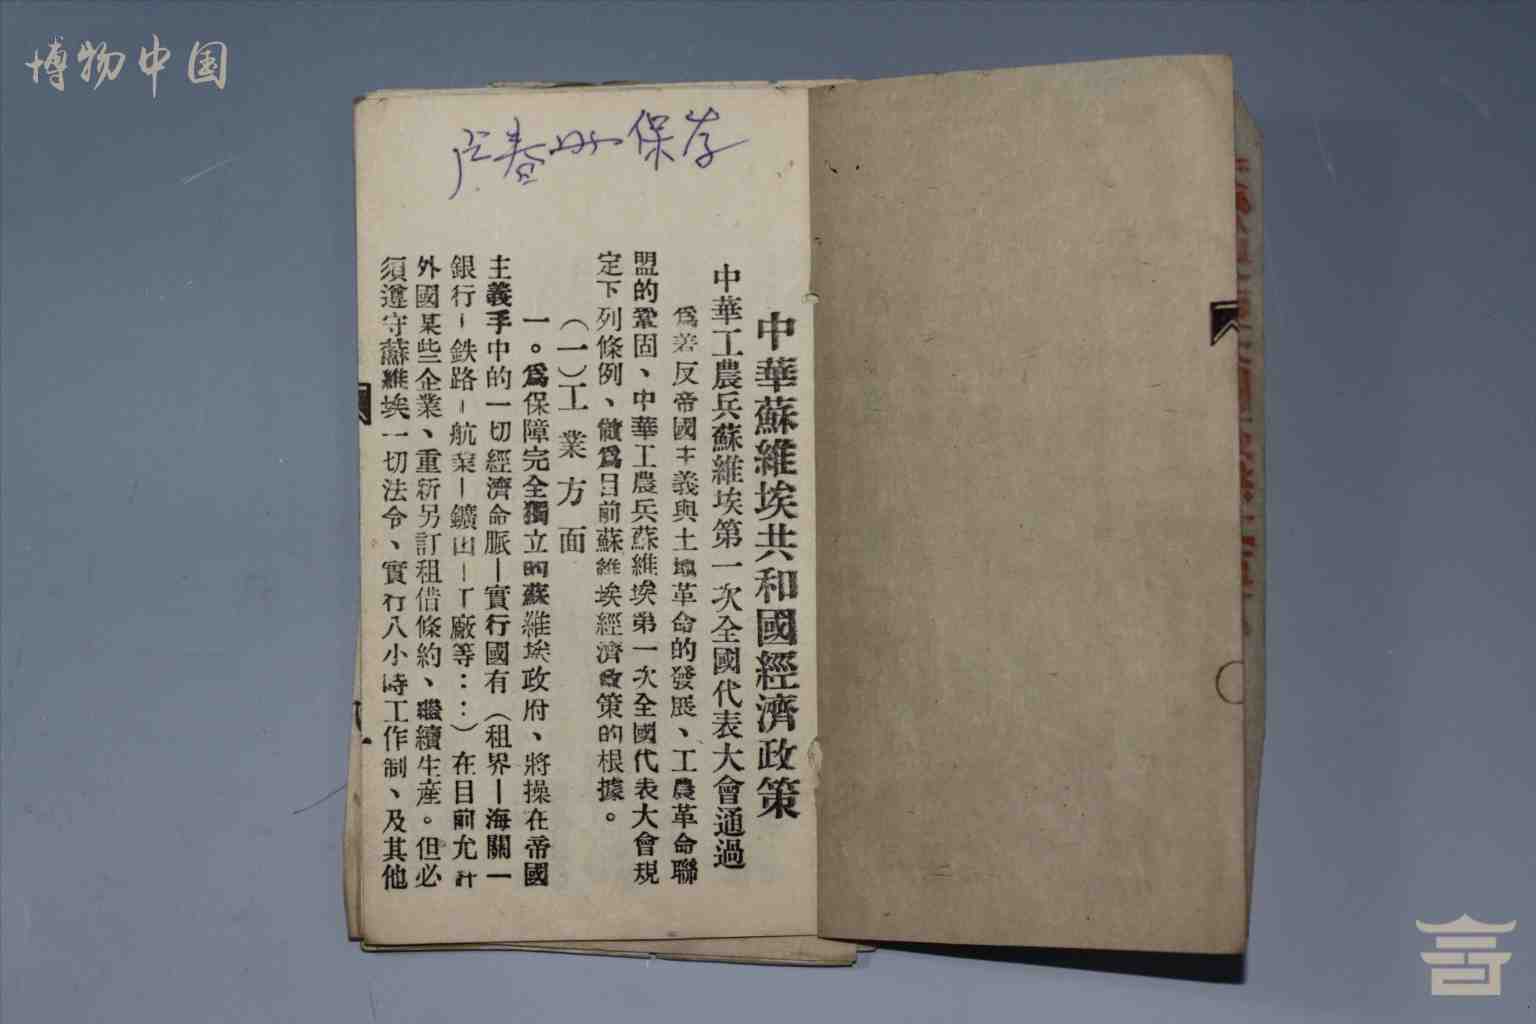 博物中国
保存
中華蘇維埃共和國經濟政策
中華工農兵蘇維埃第一次全國代表大會通過
爲着反帝國主義與土地革命的發展、工農革命聯
盟的鞏固、中華工農兵蘇維埃第一次全國代表大會規
定下列條例、做爲目前蘇維埃經濟政策的根據。
（一）工業方面
一。爲保障完全獨立的蘇維埃政府、將操在帝國
主義手中的一切經濟命脈—實行國有（租界—海關—
銀行—鉄路—航業—鑛山—工廠等：：）在目前允許
外國某些企業、重新另訂租借條約、繼續生産。但必
須遵守蘇維埃一切法令、實行八小時工作制、及其他